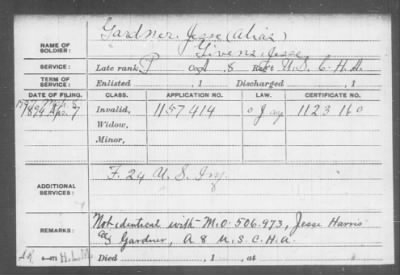 Gardner, Jesse (Alias)
NAME OF SOLDIER: Givens, Jesse
SERVICE: Late rank P Co. A 8 Reg't U.S.C.H.A.
TERM OF SERVICE: Enlisted , 1 Discharged , 1
DATE OF FILING. CLASS. APPLICATION NO. LAW. CERTIFICATE NO.
1894 Apr. 7 Invalid, 1157414 1123160
Widow,
Minor,
ADDITIONAL SERVICES: F. 24 U.S. Inf.
REMARKS: Not identical with M.O. 506.973, Jesse Harris
as Gardner, A 8 U.S.C.H.A.
Died , 1 , at